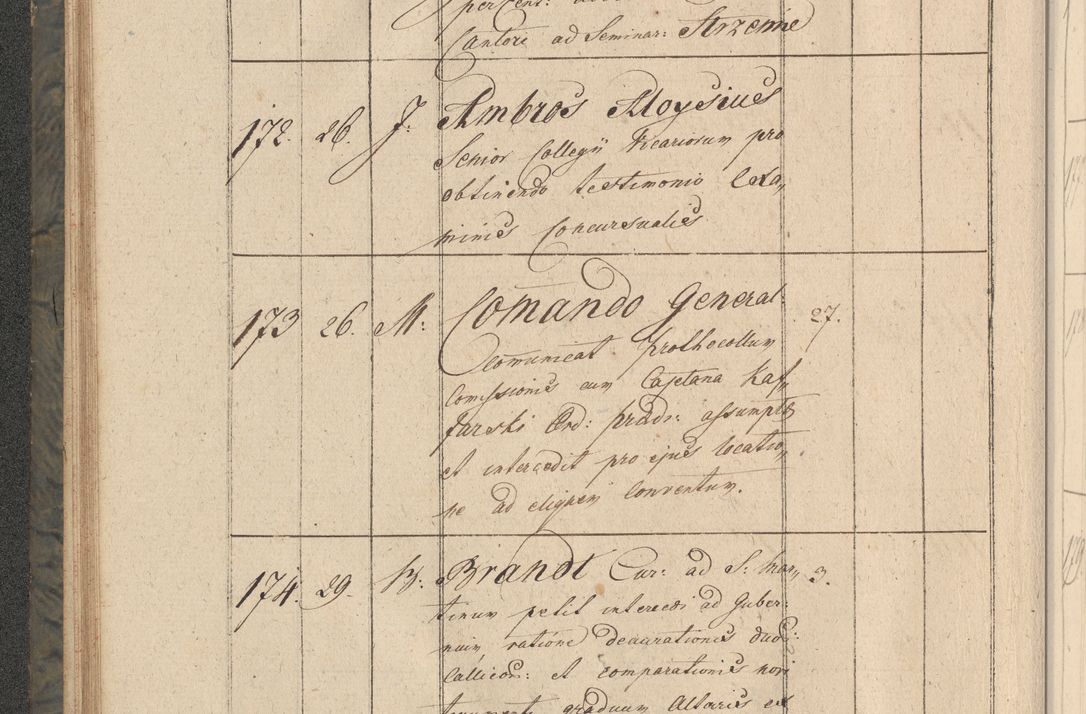 Cantori ad Seminar: Strzemie
172. 26. J: Ambros Aloysius
Senior Collegii Vicariorum pro
obtinendo testimonio Exa„
minis Concursualis
173 26. M: Comando General: 27.
Comunicat prothocollum
Comissionis cum Cajetana Kaf„
farski Ord: praedi: assumptis
et intercedit pro ejus locatio„
ne ad aliquem Conventum.
174. 29. Brandt Cur: ad S: Mar„ 3.
tinum petit intercedi ad Guber:
nium, ratione deaurationis duor:
Callicum: et comparationis novi
graduum Altaris ex